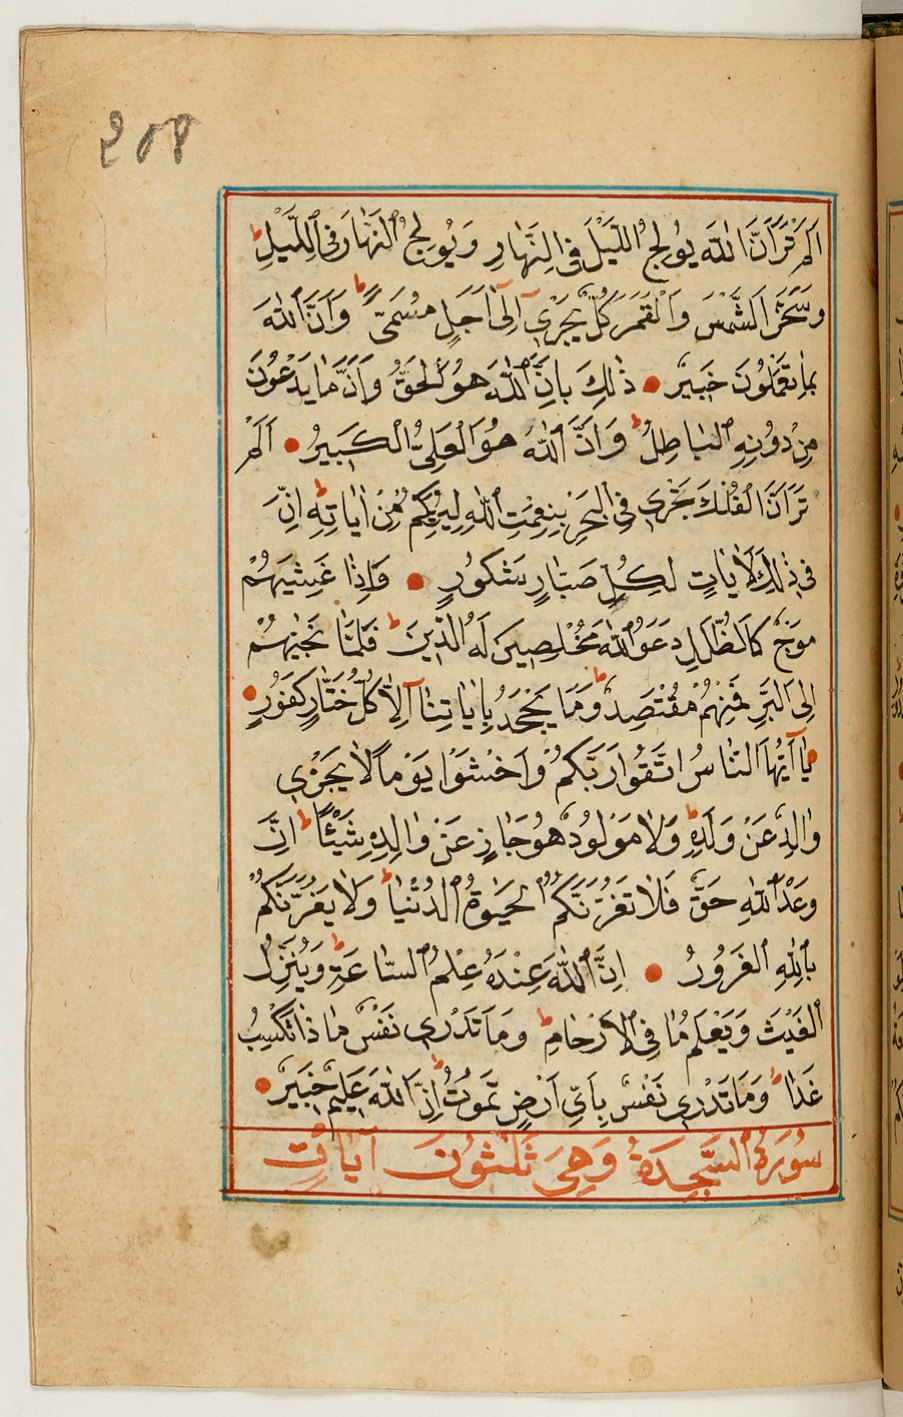 208
اَلَمْ تَرَ اَنَّ اللّٰهَ يُولِجُ الَّيْلَ فِي النَّهَارِ وَيُولِجُ النَّهَارَ فِي الَّيْلِ ط
وَسَخَّرَ الشَّمْسَ وَالْقَمَرَ كُلٌّ يَجْرِي اِلٰٓى اَجَلٍ مُسَمًّى ط وَاَنَّ اللّٰهَ
بِمَا تَعْمَلُونَ خَبِيرٌ ذٰلِكَ بِاَنَّ اللّٰهَ هُوَ الْحَقُّ وَاَنَّ مَا يَدْعُونَ
مِنْ دُونِهِ الْبَاطِلُ ط وَاَنَّ اللّٰهَ هُوَ الْعَلِيُّ الْكَبِيرُ اَلَمْ
تَرَ اَنَّ الْفُلْكَ تَجْرِي فِي الْبَحْرِ بِنِعْمَتِ اللّٰهِ لِيُرِيَكُمْ مِنْ اٰيَاتِهِ ط اِنَّ
فِي ذٰلِكَ لَاٰيَاتٍ لِكُلِّ صَبَّارٍ شَكُورٍ وَاِذَا غَشِيَهُمْ
مَوْجٌ كَالظُّلَلِ دَعَوُا اللّٰهَ مُخْلِصِينَ لَهُ الدِّينَ ط فَلَمَّا نَجّٰيهُمْ
اِلَى الْبَرِّ فَمِنْهُمْ مُقْتَصِدٌ ط وَمَا يَجْحَدُ بِاٰيَاتِنَآ اِلَّا كُلُّ خَتَّارٍ كَفُورٍ
يَآ اَيُّهَا النَّاسُ اتَّقُوا رَبَّكُمْ وَاخْشَوْا يَوْمًا لَا يَجْزِي
وَالِدٌ عَنْ وَلَدِهِ ط وَلَا مَوْلُودٌ هُوَ جَازٍ عَنْ وَالِدِهِ شَيْئًا ط اِنَّ
وَعْدَ اللّٰهِ حَقٌّ فَلَا تَغُرَّنَّكُمُ الْحَيٰوةُ الدُّنْيَا ط وَلَا يَغُرَّنَّكُمْ
بِاللّٰهِ الْغَرُورُ اِنَّ اللّٰهَ عِنْدَهُ عِلْمُ السَّاعَةِ ط وَيُنَزِّلُ
الْغَيْثَ وَيَعْلَمُ مَا فِي الْاَرْحَامِ ط وَمَا تَدْرِي نَفْسٌ مَا ذَا تَكْسِبُ
غَدًا ط وَمَا تَدْرِي نَفْسٌ بِاَيِّ اَرْضٍ تَمُوتُ ط اِنَّ اللّٰهَ عَلِيمٌ خَبِيرٌ
سُورَةُ السَّجْدَةِ وَهِيَ ثَلٰثُونَ اٰيَاتٍ